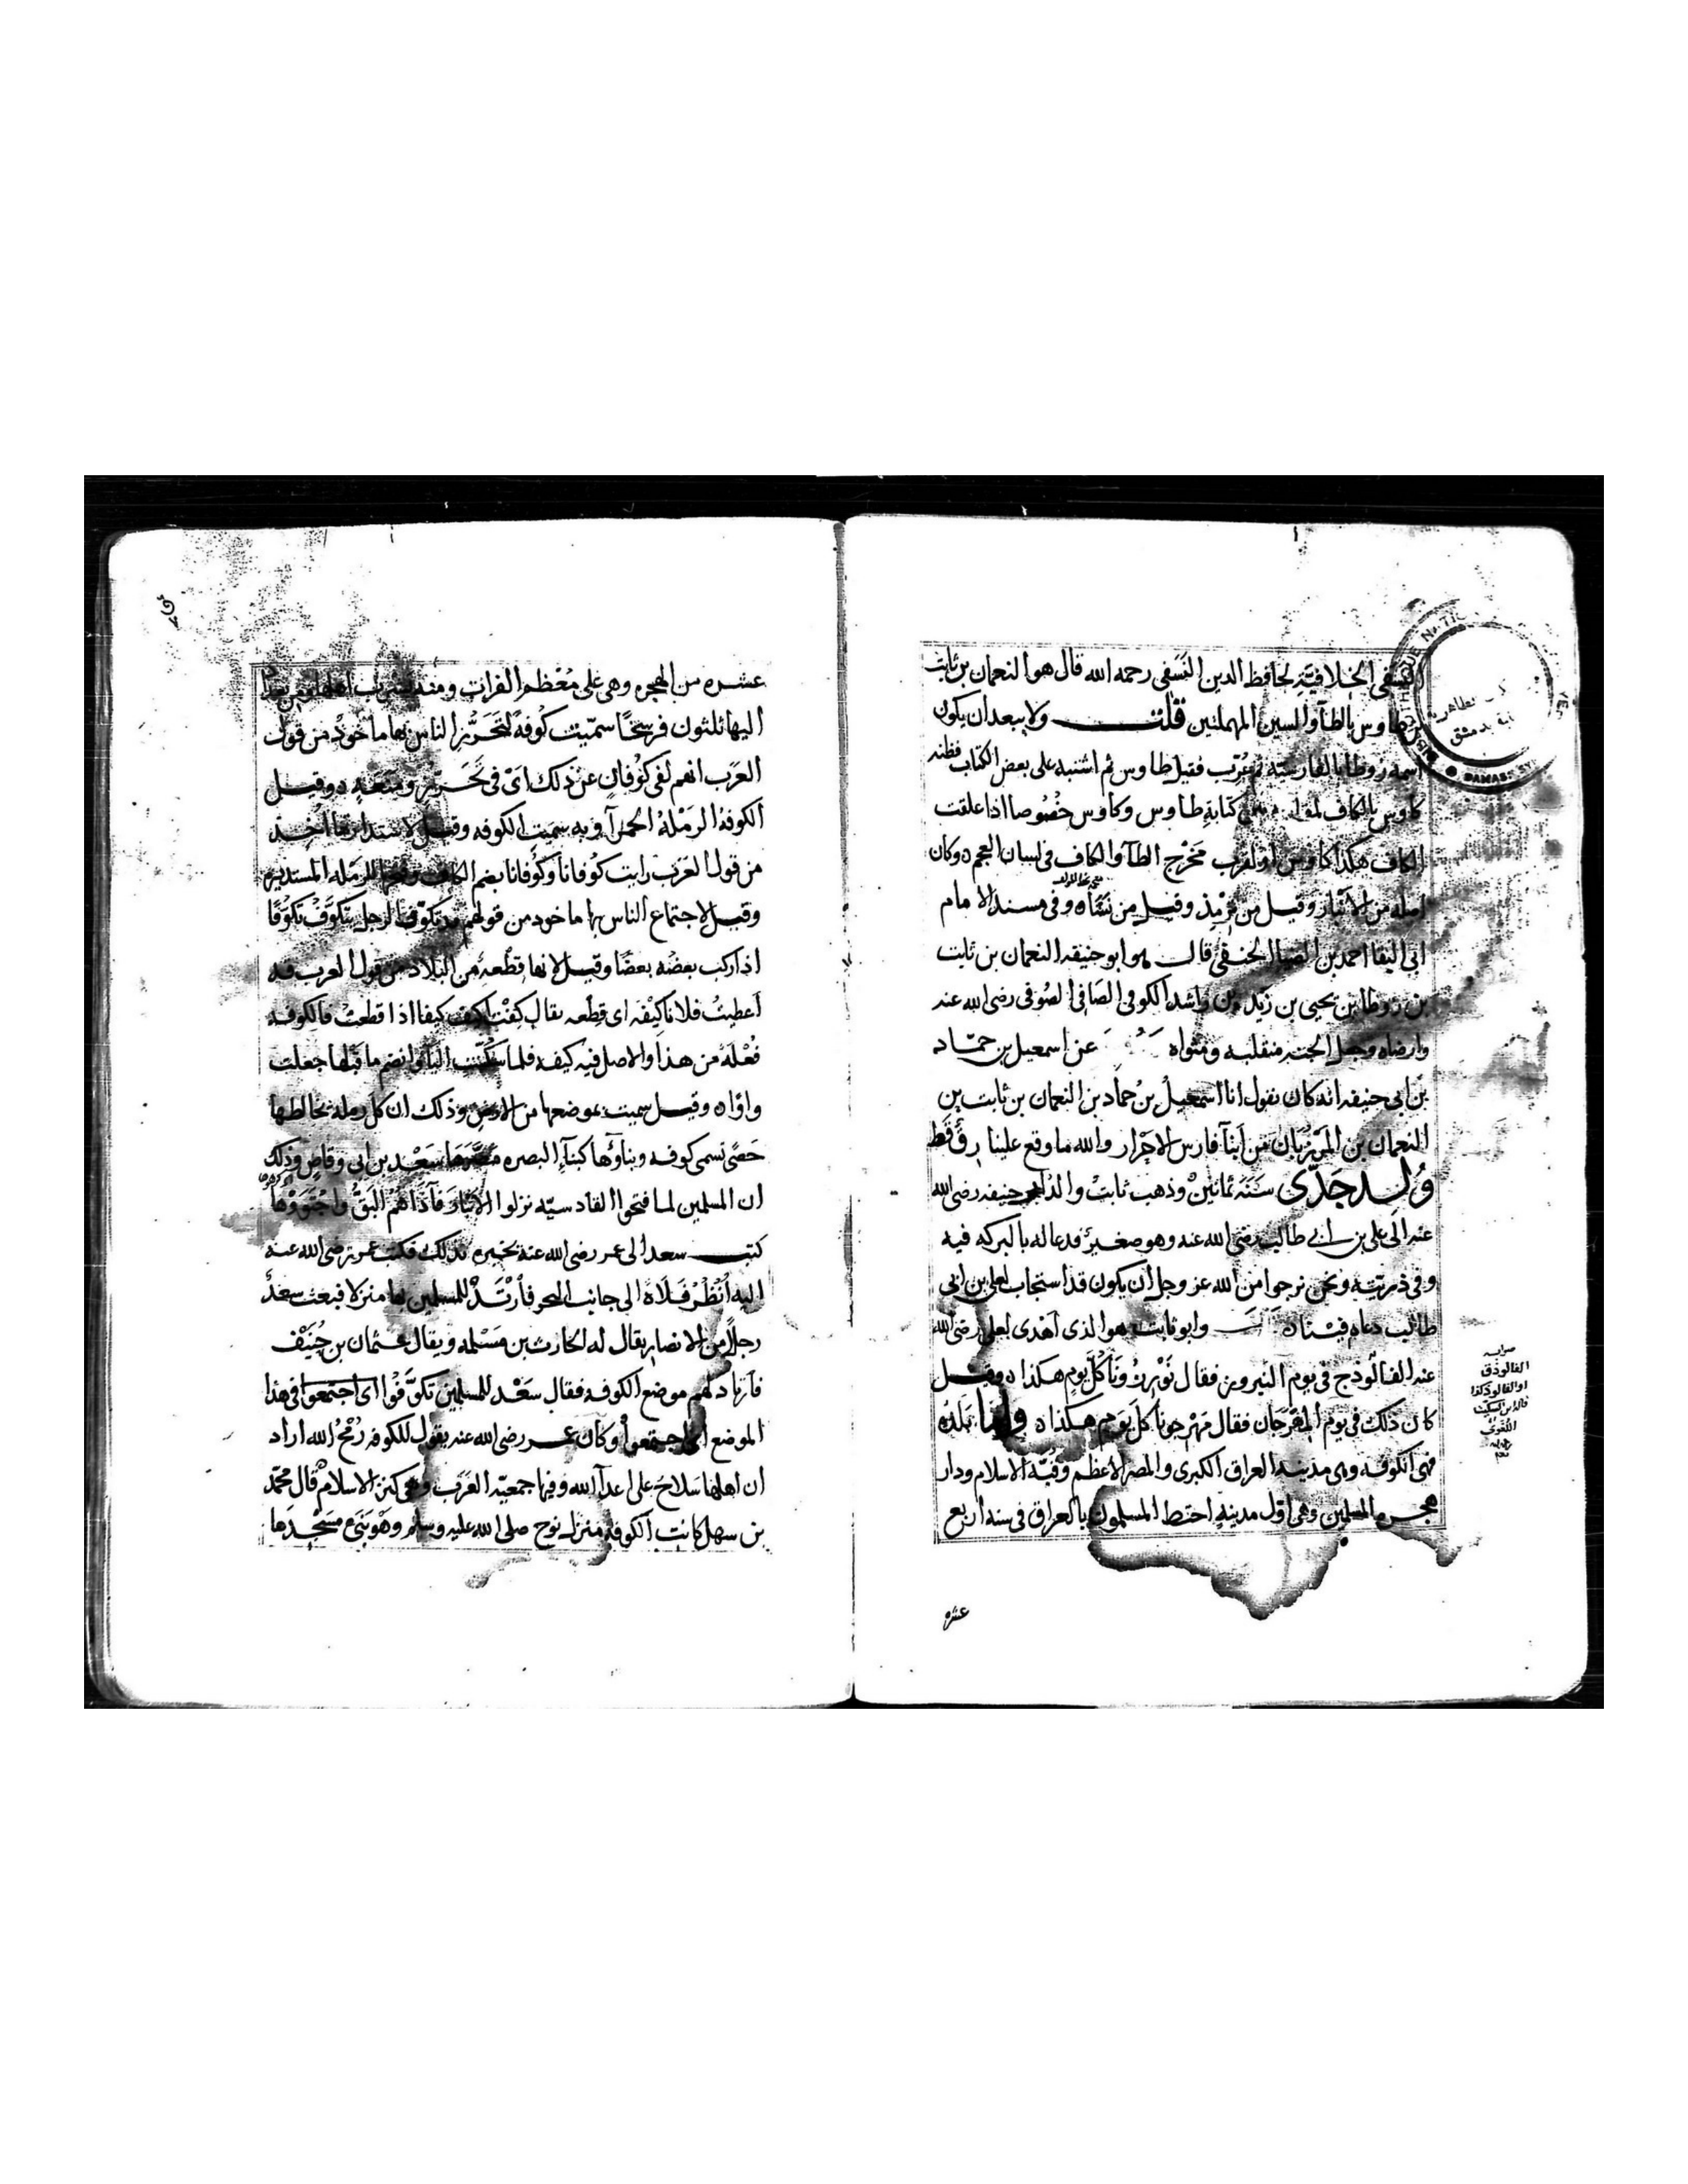 النسفى الخلافية لحافظ الدين النسفى رحمه الله قال هو النعمان بن ثابت
بن طاوس بالطآ والسين المهملتين قلت ولا يبعد ان يكون
اسمه زوطا بالفارسية ثم عرب فقيل طاوس ثم اشتبه على بعض الكتاب فظنه
كاوس بالكاف كتابة طاوس وكاوس خصوصا اذا علقت
الكاف هكذا كاوس او لقرب مخرج الطآ والكاف فى لسان العجم وكان
اصله من الانبار وقيل من ترمذ وقيل من نسأه وفى مسند الامام
ابى البقا احمد بن الضيا الحنفى قال هو ابو حنيفه النعمان بن ثابت
بن زوطا بن يحيى بن زيد بن راشد الكوفى الصافى الصوفى رضى الله عنه
وارضاه وجعل الجنه منقلبه ومثواه عن اسمعيل بن حمّاد
بن ابى حنيفه انه كان يقول انا اسمعيل بن حماد بن النعمان بن ثابت بن
النعمان بن المرزبان من ابنآ فارس الاحرار والله ما وقع علينا رق قط
ولد جدى سنة ثمانين وذهب ثابت والد ابى حنيفه رضى الله
عنه الى على بن ابى طالب رضى الله عنه وهو صغير فدعا له بالبركه فيه
وفى ذريته ونحن نرجوا من الله عز وجل ان يكون قد استجاب لعلى بن ابى
طالب دعاه فينا وابو ثابت هو الذى اهدى لعلى رضى الله
عنه الفالوذج فى يوم النيروز فقال نورزونا كل يوم هكذا وقيل
كان ذلك فى يوم المهرجان فقال مهرجونا كل يوم هكذا واما بلده
فهى الكوفه وهى مدينه العراق الكبرى والمصر الاعظم وقبّة الاسلام ودار
هجره المسلمين وهى اول مدينة اختط المسلمون بالعراق فى سنه اربع
صوابه
الفالوذق
او الفالوذ كذا
قاله ابن السكيت
اللغوى
عشره
عشره من الهجره وهى على معظم الفرات ومنه شرب اهلها ومن بغداد
اليها ثلثون فرسخًا سمّيت كوفه لتحرّز الناس بها ماخوذ من قول
العرب انهم لفى كوفان عن ذلك اى فى حرز ومنعة وقيل
الكوفة الرملة الحمرآ وبه سميت الكوفه وقيل لاستدارتها اخذ
من قول العرب رايت كوفانا وكوفانا بضم الكاف وفتحها للرمله المستديره
وقيل لاجتماع الناس بها ماخوذ من قولهم قد تكوّف الرجل يتكوّف تكوّفا
اذا ركب بعضه بعضا وقيل لانها قطعة من البلاد من قول العرب قد
اعطيت فلانا كيفه اى قطعه يقال كفت اكيف كيفا اذا قطعت فالكوفه
فعلة من هذا والاصل فيه كيفه فلما سكنت اليآ وانضم ما قبلها جعلت
واوا وقيل سميت بموضعها من الارض وذلك ان كل رمله يخالطها
حصى تسمى كوفه وبناؤها كبنآ البصره مصّرها سعد بن ابى وقاص وذلك
ان المسلمين لما فتحوا القادسيّه نزلوا الانبار فآذاهم البق واجتووها
كتب سعد الى عمر رضى الله عنه يخبره بذلك فكتب عمر رضى الله عنه
اليه انظر فلاة الى جانب البحر فارتد للمسلمين بها منزلا فبعث سعد
رجلا من الانصار يقال له الحارث بن مسلمه ويقال عثمان بن حنيف
فارتاد لهم موضع الكوفه فقال سعد للمسلمين تكوّفوا اى اجتمعوا فى هذا
الموضع اى اجتمعوا وكان عمر رضى الله عنه يقول للكوفه رمح الله اراد
ان اهلها سلاح على اعدآ الله وفيها جمعيّة العرب وهى كنز الاسلام قال محمّد
بن سهل كانت الكوفه منزل نوح صلى الله عليه وسلم وهو بنى مسجدها